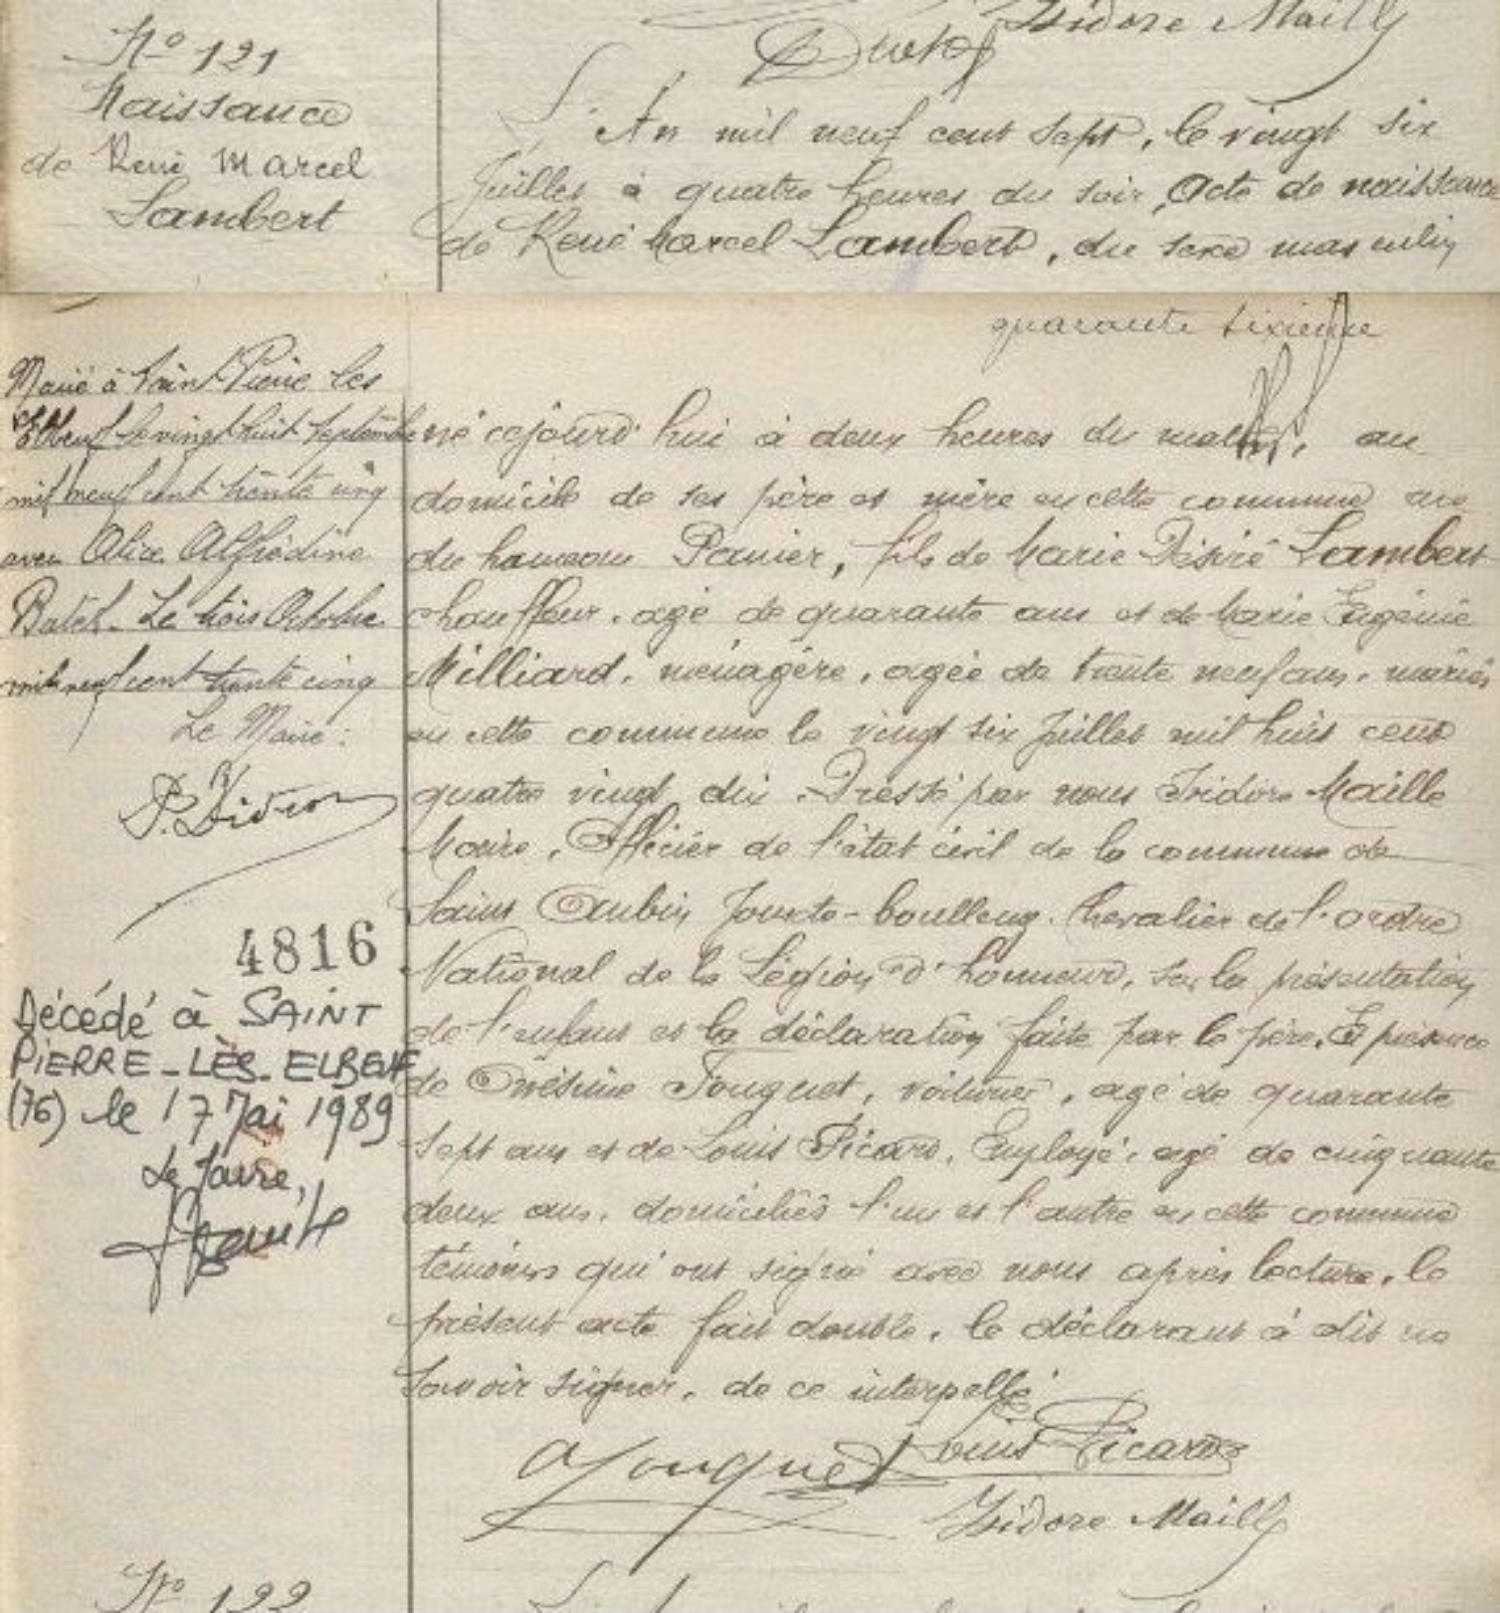 Isidore Mailly
N° 121
Naissance
de René Marcel
Lambert
L'An mil neuf cent sept, le vingt six
Juillet à quatre heures du soir, Acte de naissance
de René Marcel Lambert, du sexe masculin
quarante sixième
Marié à Saint Pierre les
Elbeuf le vingt huit Septembre
mil neuf cent trente cinq
avec Alice Alfrédine
Batel. Le trois Octobre
mil neuf cent trente cinq
Le Maire :
4816
Décédé à SAINT
PIERRE-LÈS-ELBEUF
(76) le 17 Mai 1989
Le Maire,
né cejourd'hui à deux heures du matin, au
domicile de ses père et mère en cette commune
du hameau Panier, fils de Marie Désiré Lambert
chauffeur, agé de quarante ans et de Marie Eugénie
Milliard, ménagère, agée de trente neuf ans, mariés
en cette commune le vingt six Juillet mil huit cent
quatre vingt dix. Dressé par nous Isidore Maille
Maire, Officier de l'état civil de la commune de
Saint Aubin Jouxte-boulleng. Chevalier de l'ordre
National de la Légion d'honneur, sur la présentation
de l'enfant et la déclaration faite par le père. En présence
de Onésime Fouquet, voiturier, agé de quarante
sept ans et de Louis Picard, Employé, agé de cinquante
deux ans, domiciliés l'un et l'autre en cette commune
témoins qui ont signé avec nous après lecture, le
présent acte fait double, le déclarant à dit ne
savoir signer, de ce interpellé
Fouquet Louis Picard
Isidore Mailly
N° 122